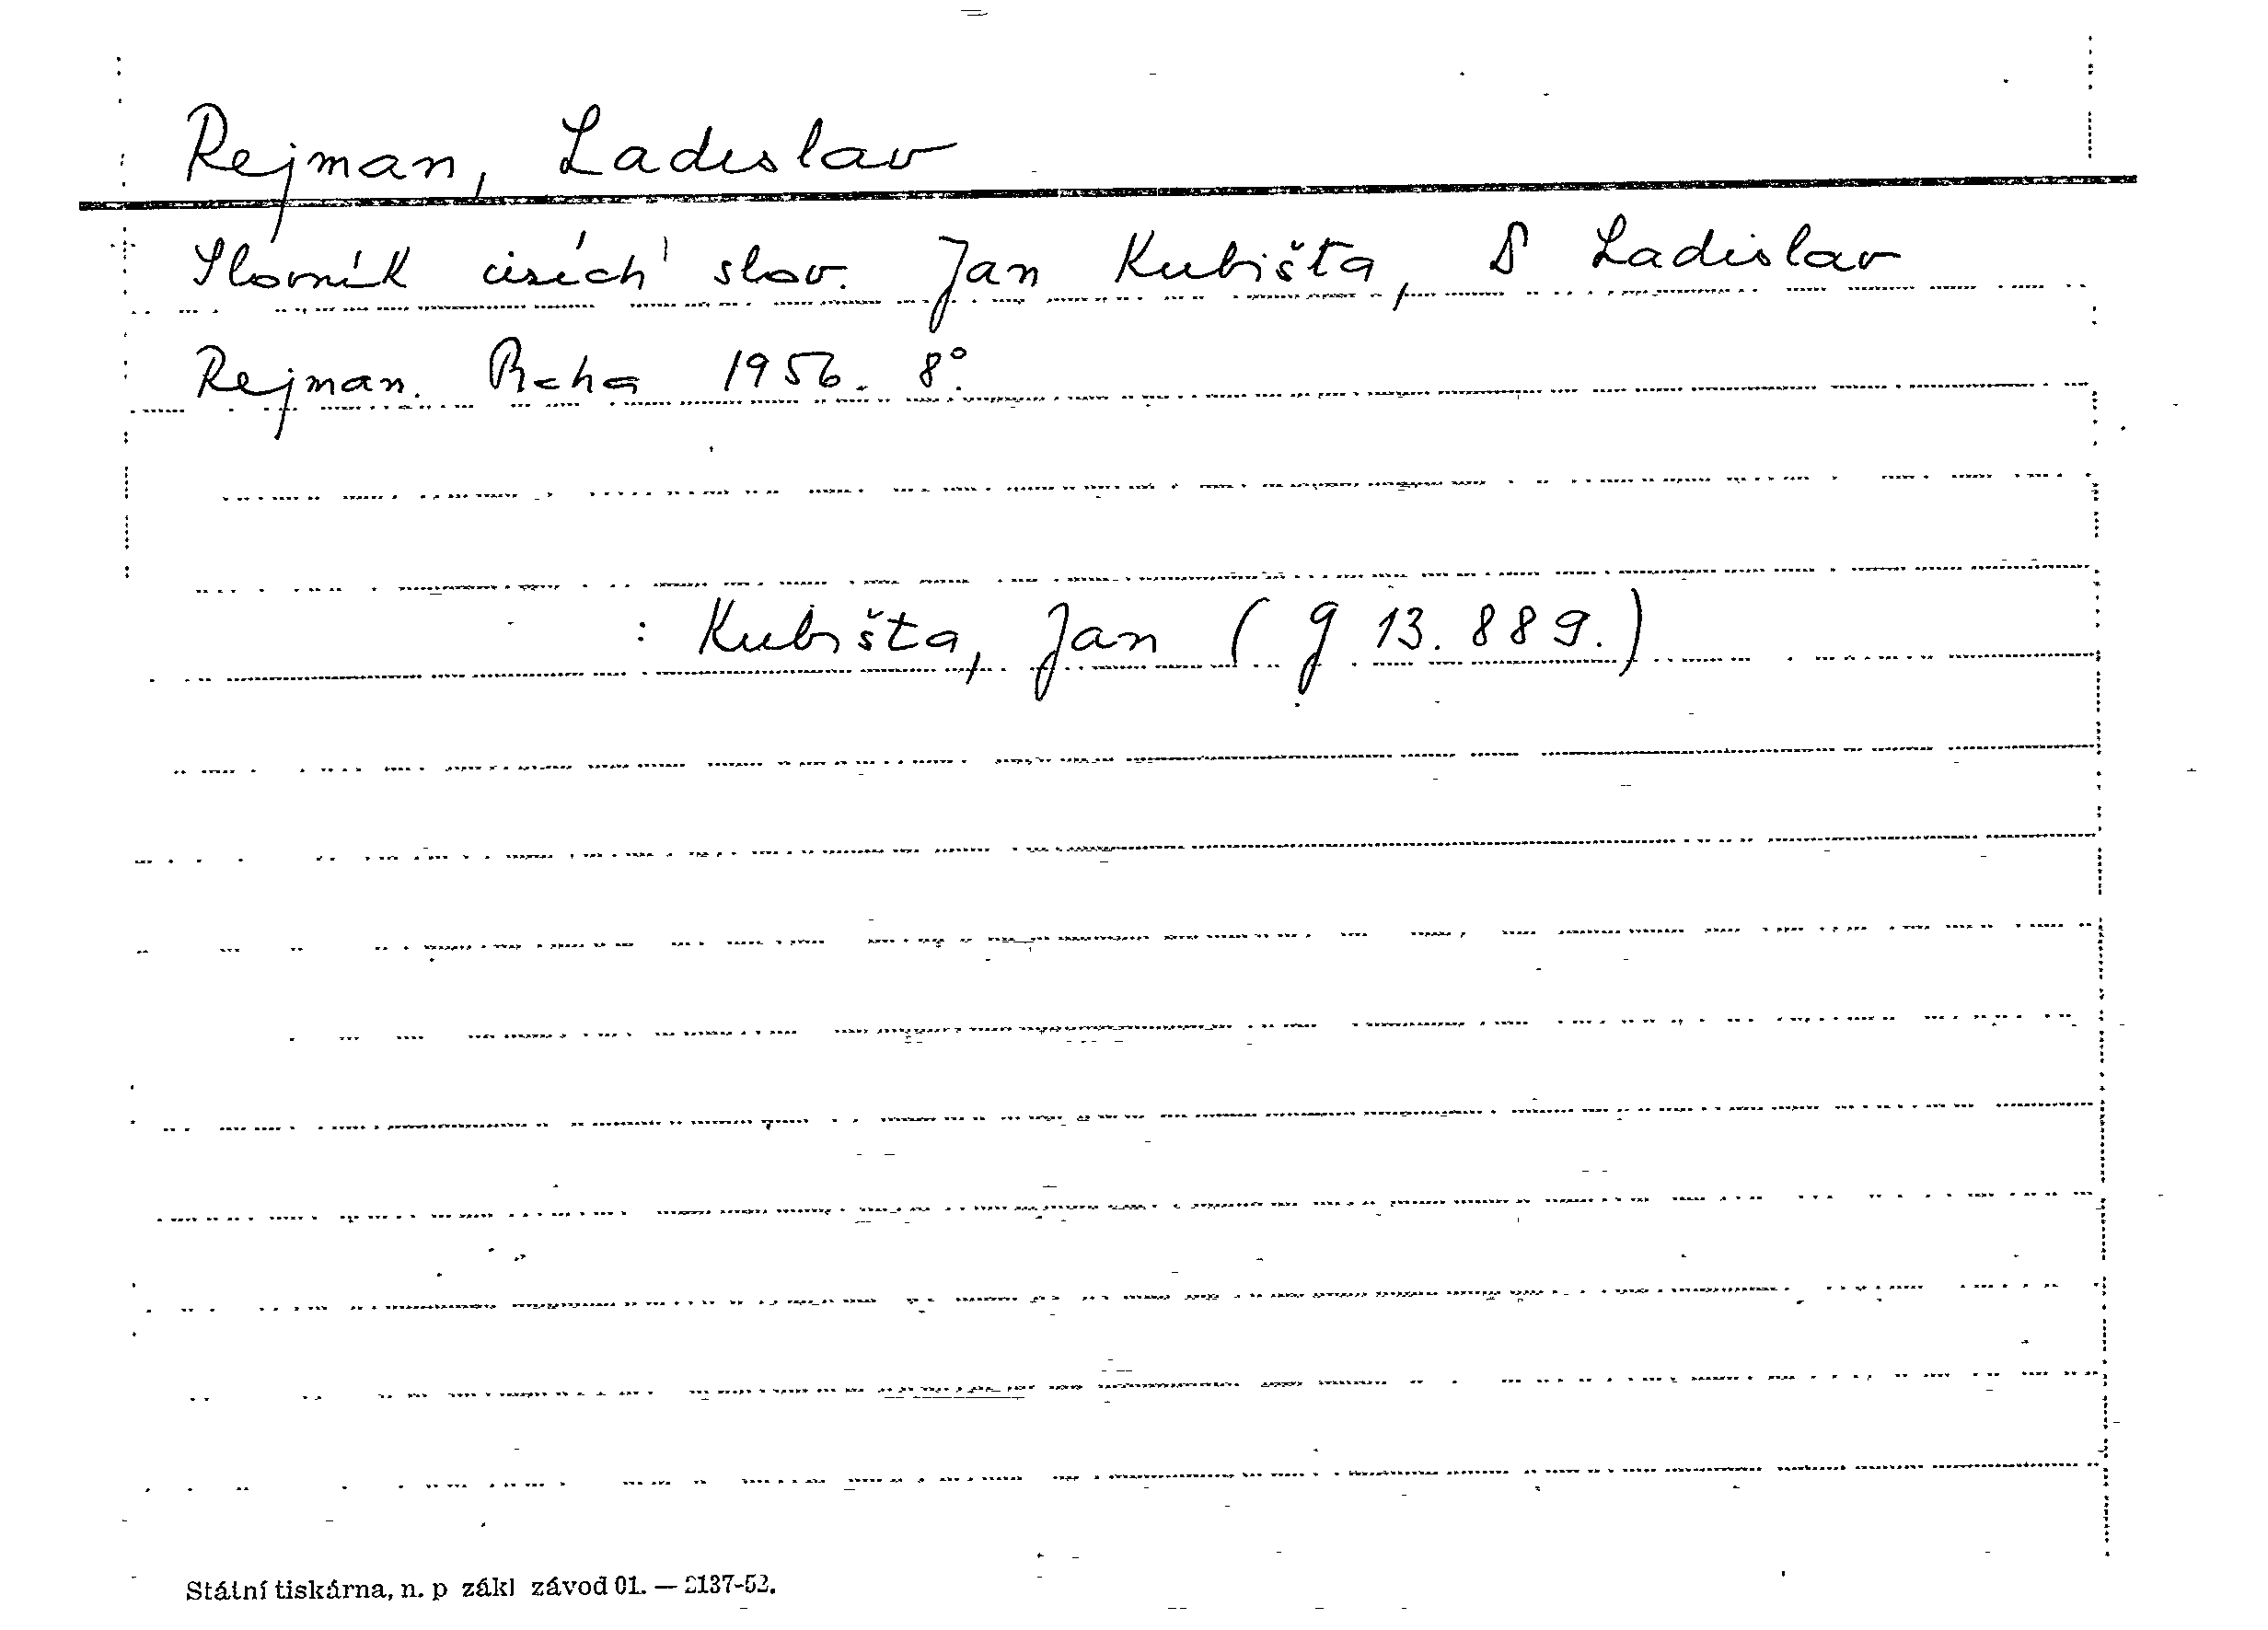 Rejman, Ladislav
Slovník cizích slov. Jan Kubišta, Ladislav
Rejman. Praha 1956. 8°.
: Kubišta, Jan (g 13.889.)
Státní tiskárna, n. p zákl závod 01. — 2137-52.